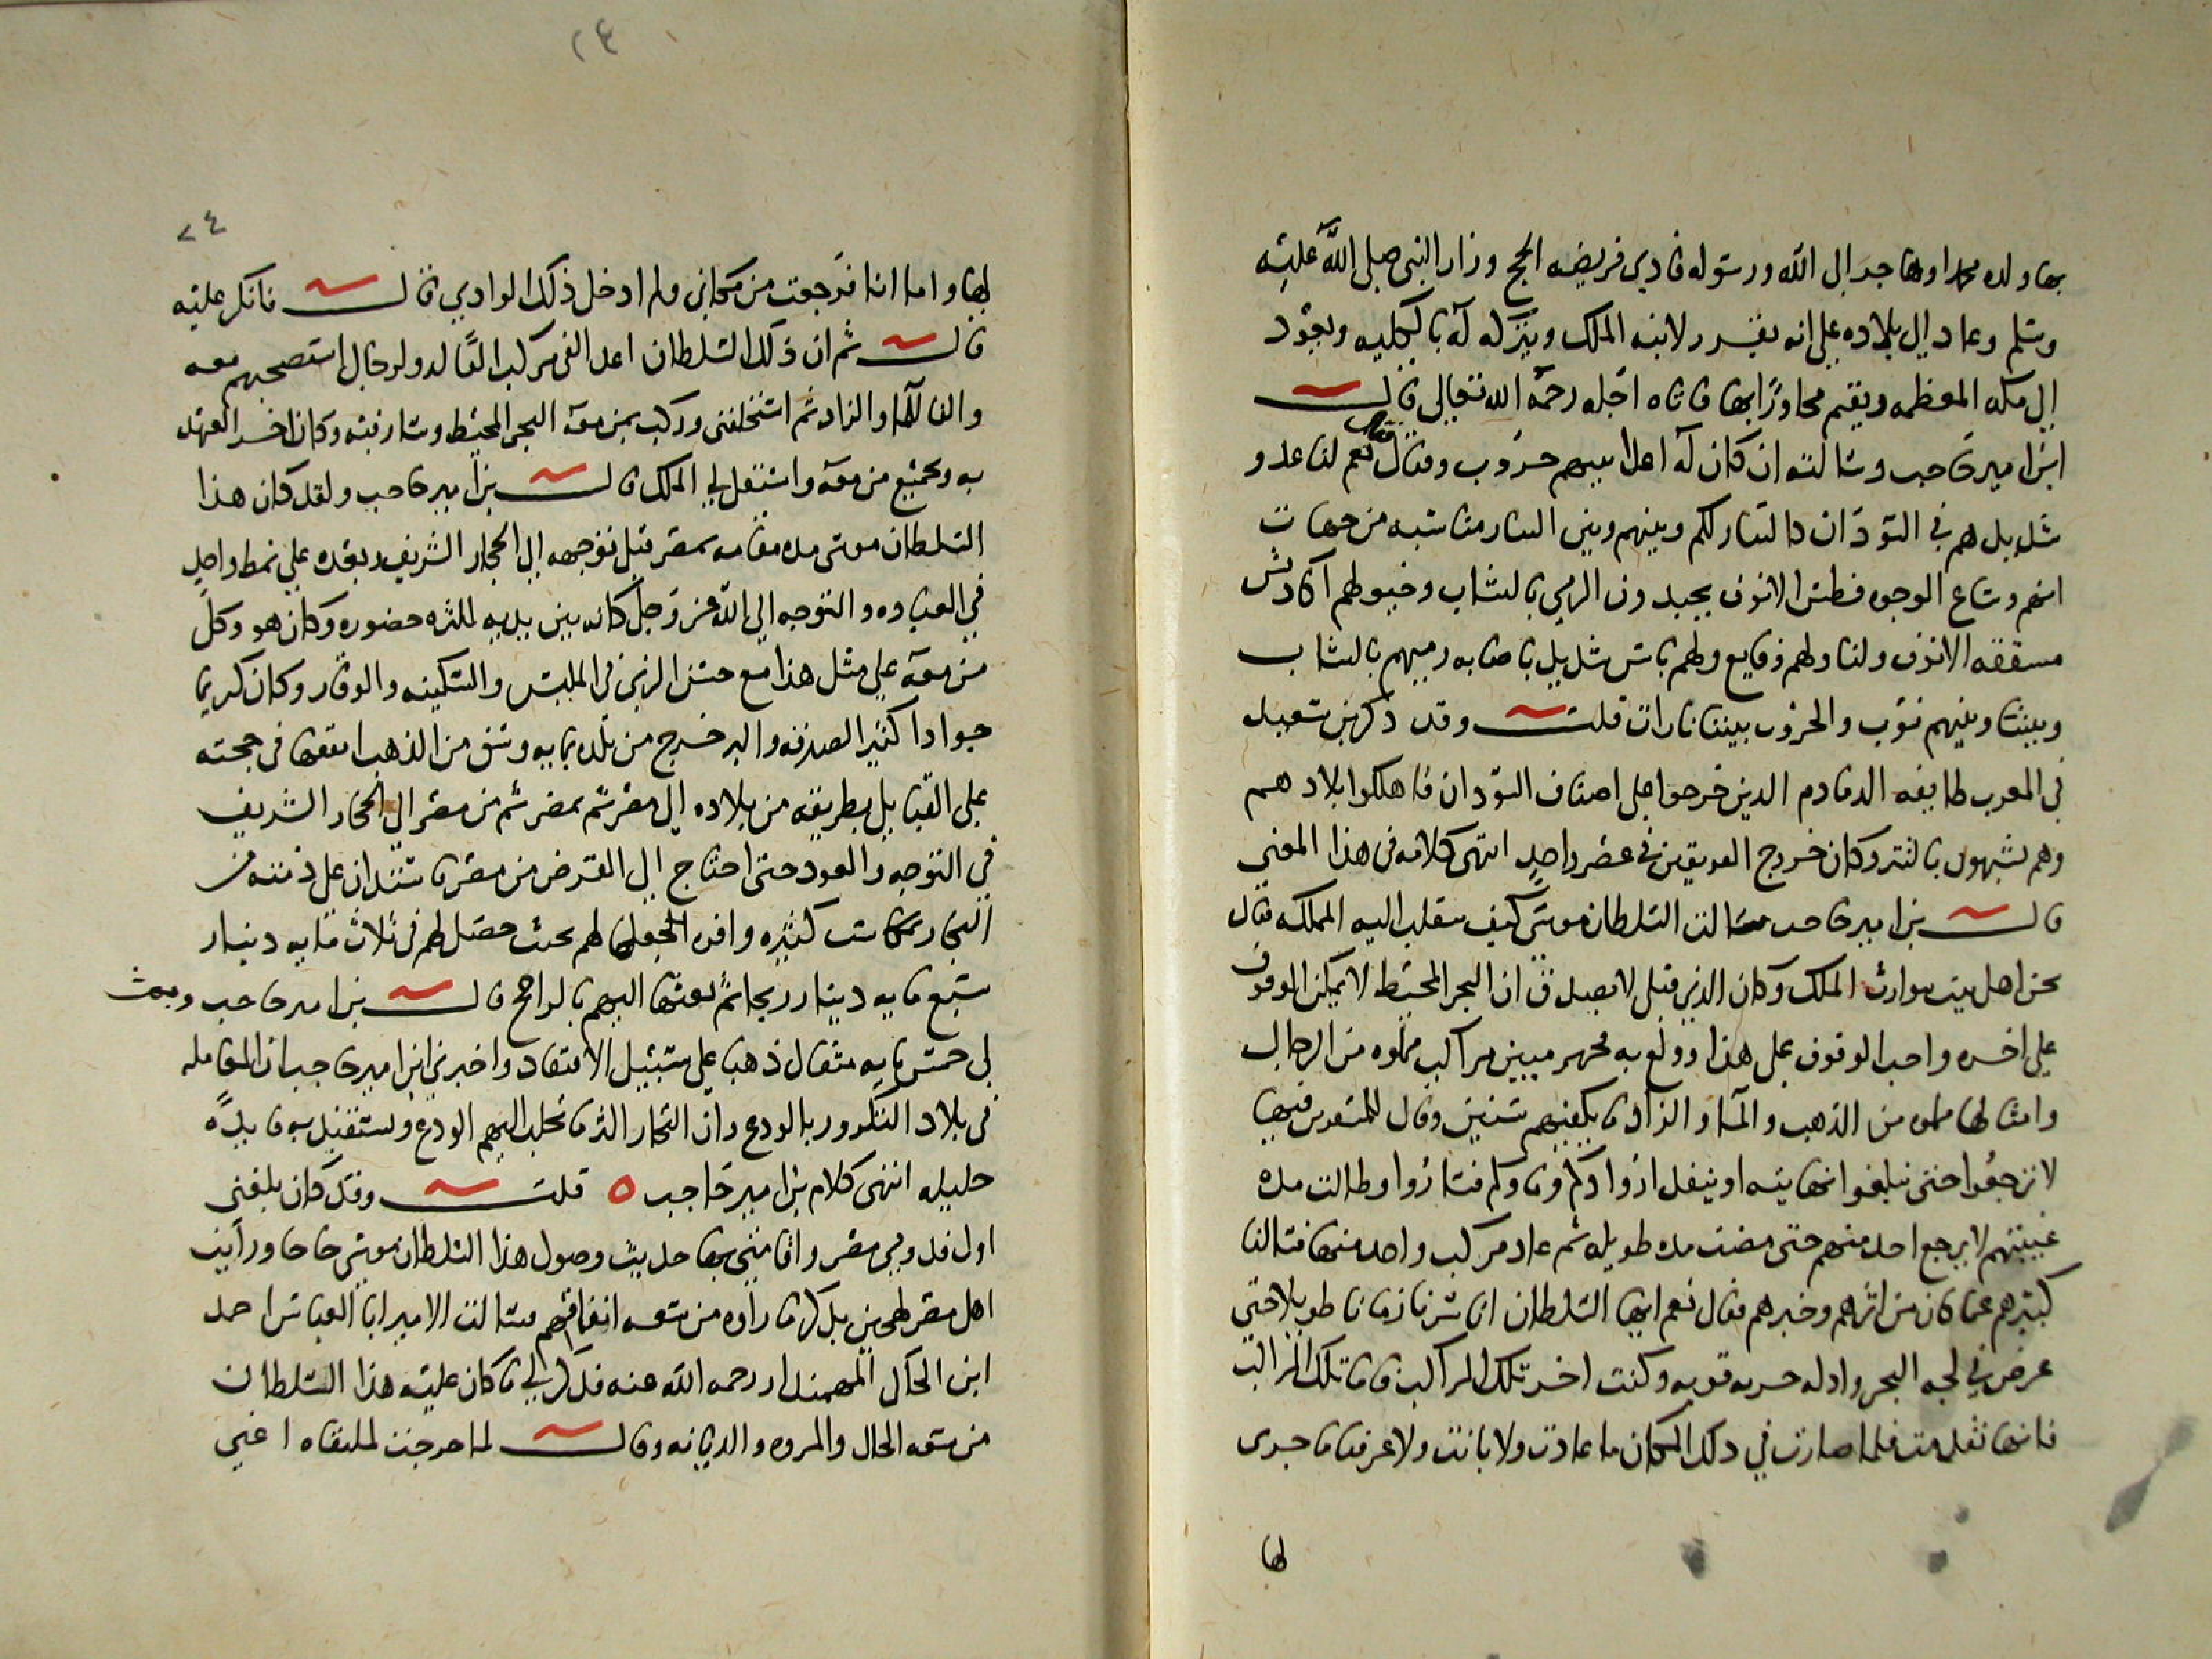 بها ولده محمدا وهاجر الى الله ورسوله فادى فريضه الحج وزار النبي صلى الله عليه
وسلم وعاد الى بلاده على انه يقرر لابنه الملك ويتركه له بالكليه ويعود
الى مكه المعظمه ويقيم مجاورا بها فاتاه اجله رحمه الله تعالى قال
ابن امير حاجب وسالته ان كان له اعدا بينهم حروب وقتال فقال نعم لنا عدو
شديد هم في السودان كالتتار لكم وبينهم وبين التتار مناسبه من جهات
انهم وساع الوجوه فطس الانوف يجيدون الرمي بالنشاب وخيولهم اكاديش
مشققه الانوف ولنا ولهم وقايع ولهم باس شديد باصابه رميهم بالنشاب
وبيننا وبينهم نوب والحروب بيننا تارات قلت وقد ذكر بن سعيد
في المغرب طايفه الدمادم الذين خرجوا على اصناف السودان فاهلكوا بلادهم
وهم يشبهون بالتتر وكان خروج الفريقين في عصر واحد انتهى كلامه في هذا المعنى
قال بن امير حاجب سالت السلطان موسى كيف انتقلت اليه المملكه فقال
نحن اهل بيت نتوارث الملك وكان الذي قبلي لا يصدق ان البحر المحيط لا يمكن الوقوف
على اخره واحب الوقوف على هذا وولع به فجهز ميتين مراكب مملوه من الرجال
وامثالها مملوه من الذهب والما والزاد ما يكفيهم سنين وقال للمسفرين فيها
لا ترجعوا حتى تبلغوا نهايته او ينفد ازوادكم وماوكم فساروا وطالت مده
غيبتهم لا يرجع احد منهم حتى مضت مده طويله ثم عاد مركب واحد منها فسالنا
كبيرهم عما كان من اثرهم وخبرهم فقال نعم ايها السلطان انا سرنا زمانا طويلا حتى
عرض في لجه البحر واد له جريه قويه وكنت اخر تلك المراكب فاما تلك المراكب
فانها تقدمت فلما صارت في ذلك المكان ما عادت ولا بانت ولا عرفنا ما جرى
لها
٢٤
٢٤
لها واما انا فرجعت من مكاني ولم ادخل ذلك الوادي قال فانكر عليه
قال ثم ان ذلك السلطان اعد الفي مركب الفا له ولرجال استصحبهم معه
والفا للما والزاد ثم استخلفني وركب بمن معه البحر المحيط وسار فيه وكان اخر العهد
به وبجميع من معه واستقل لي الملك قال بن امير حاجب ولقد كان هذا
السلطان موسى مده مقامه بمصر قبل توجهه الى الحجاز الشريف وبعده على نمط واحد
في العباده والتوجه الى الله عز وجل كانه بين يديه لكثره حضوره وكان هو وكل
من معه على مثل هذا مع حسن الزي في الملبس والسكينه والوقار وكان كريما
جوادا كثير الصدقه والبر خرج من بلده بمايه وسق من الذهب انفقها في حجته
على القبايل بطريقه من بلاده الى مصر ثم بمصر ثم من مصر الى الحجاز الشريف
في التوجه والعود حتى احتاج الى القرض من مصر فاستدان على ذمته من
التجار بمكاسب كثيره وافره جعلها لهم بحيث حصل لهم في ثلاث مايه دينار
سبع مايه دينار ربحا ثم بعثها اليهم بالراجح قال بن امير حاجب وبعث
لي خمس مايه مثقال ذهبا على سبيل الافتقاد واخبرني ابن امير حاجب ان المعامله
في بلاد التكرور بالودع وان التجار اكثر ما تجلب اليهم الودع وتستفيد به فايده
جليله انتهى كلام بن امير حاجب ٥ قلت وقد كان بلغني
اول قدومي مصر واقامتي بها حديث وصول هذا السلطان موسى حاجا ورايت
اهل مصر لهجين بذكر ما راوه من سعه انفاقهم فسالت الامير ابا العباس احمد
ابن الحاك المهمندار رحمه الله عنه فذكر لي ما كان عليه هذا السلطان
من سعه الحال والمروه والديانه وقال لما خرجت لملتقاه اعني